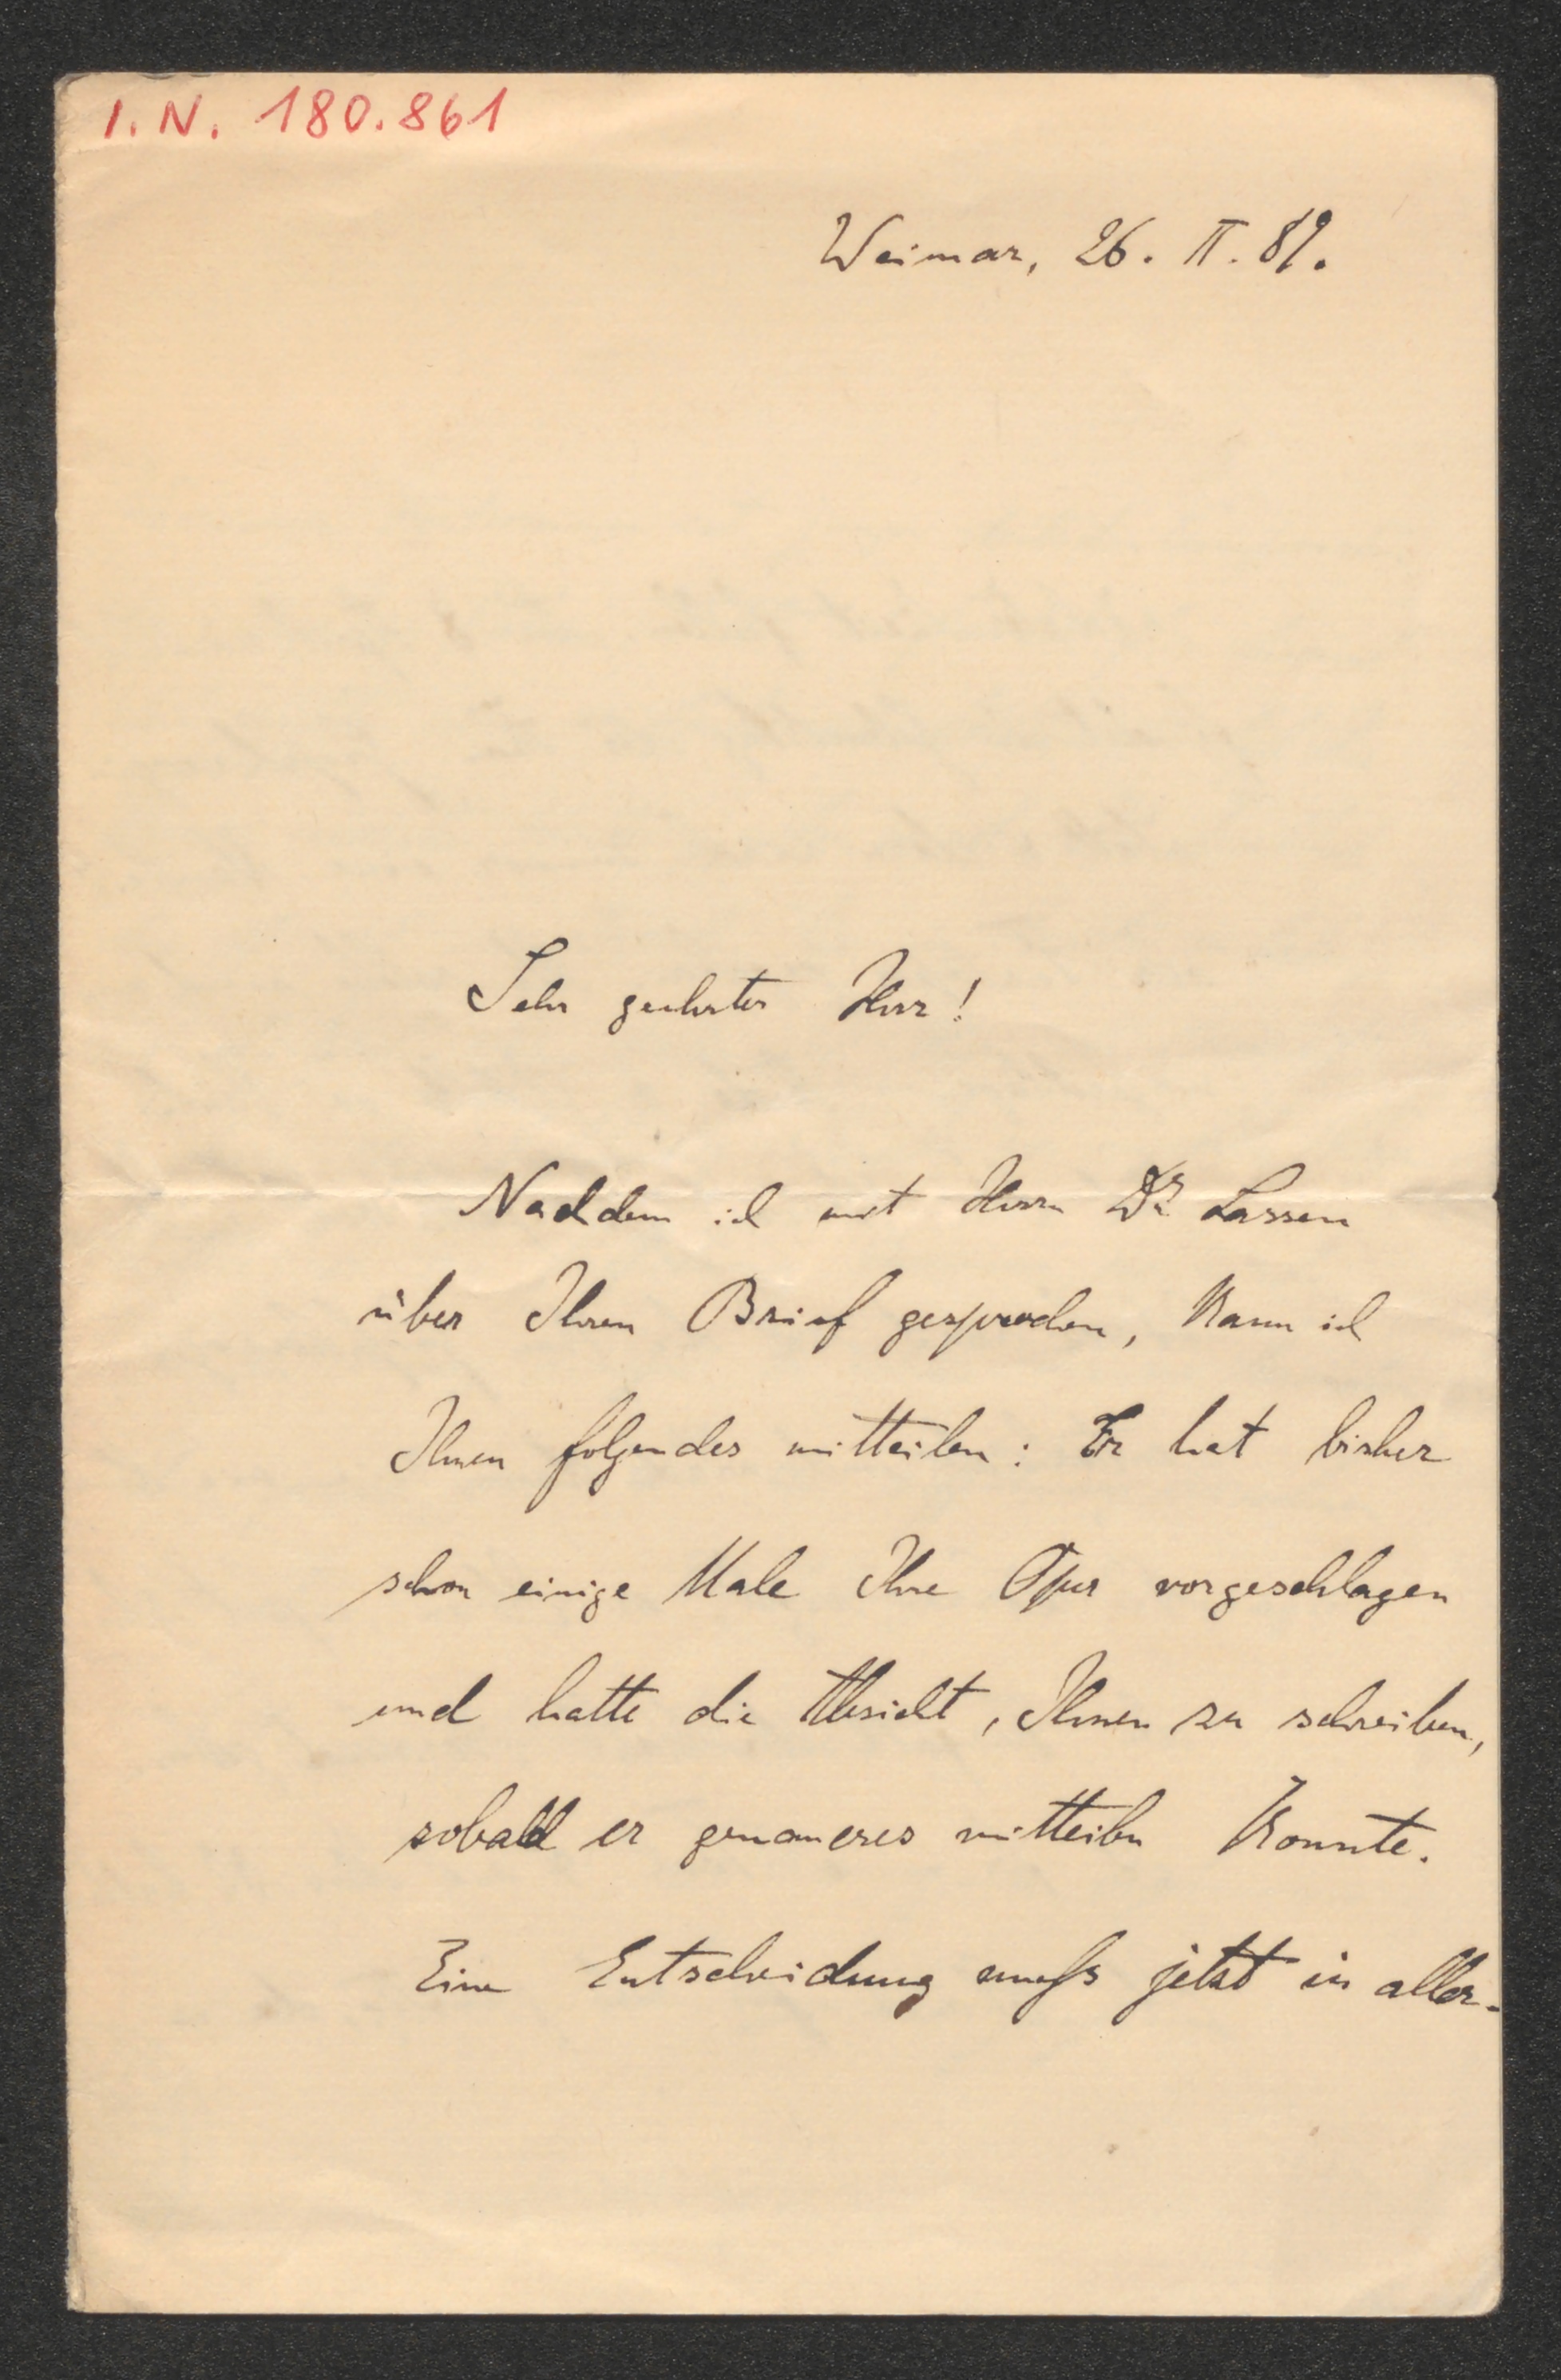 I. N. 180.861
Weimar, 26. II. 89.
Sehr geehrter Herr!
Nachdem ich mit Herrn Dr Lassen
über Ihren Brief gesprochen, kann ich
Ihnen folgendes mitteilen: Er hat bisher
schon einige Male Ihre Oper vorgeschlagen
und hatte die Absicht, Ihnen zu schreiben,
sobald er genaueres mitteilen konnte.
Eine Entscheidung muſs jetzt in aller-